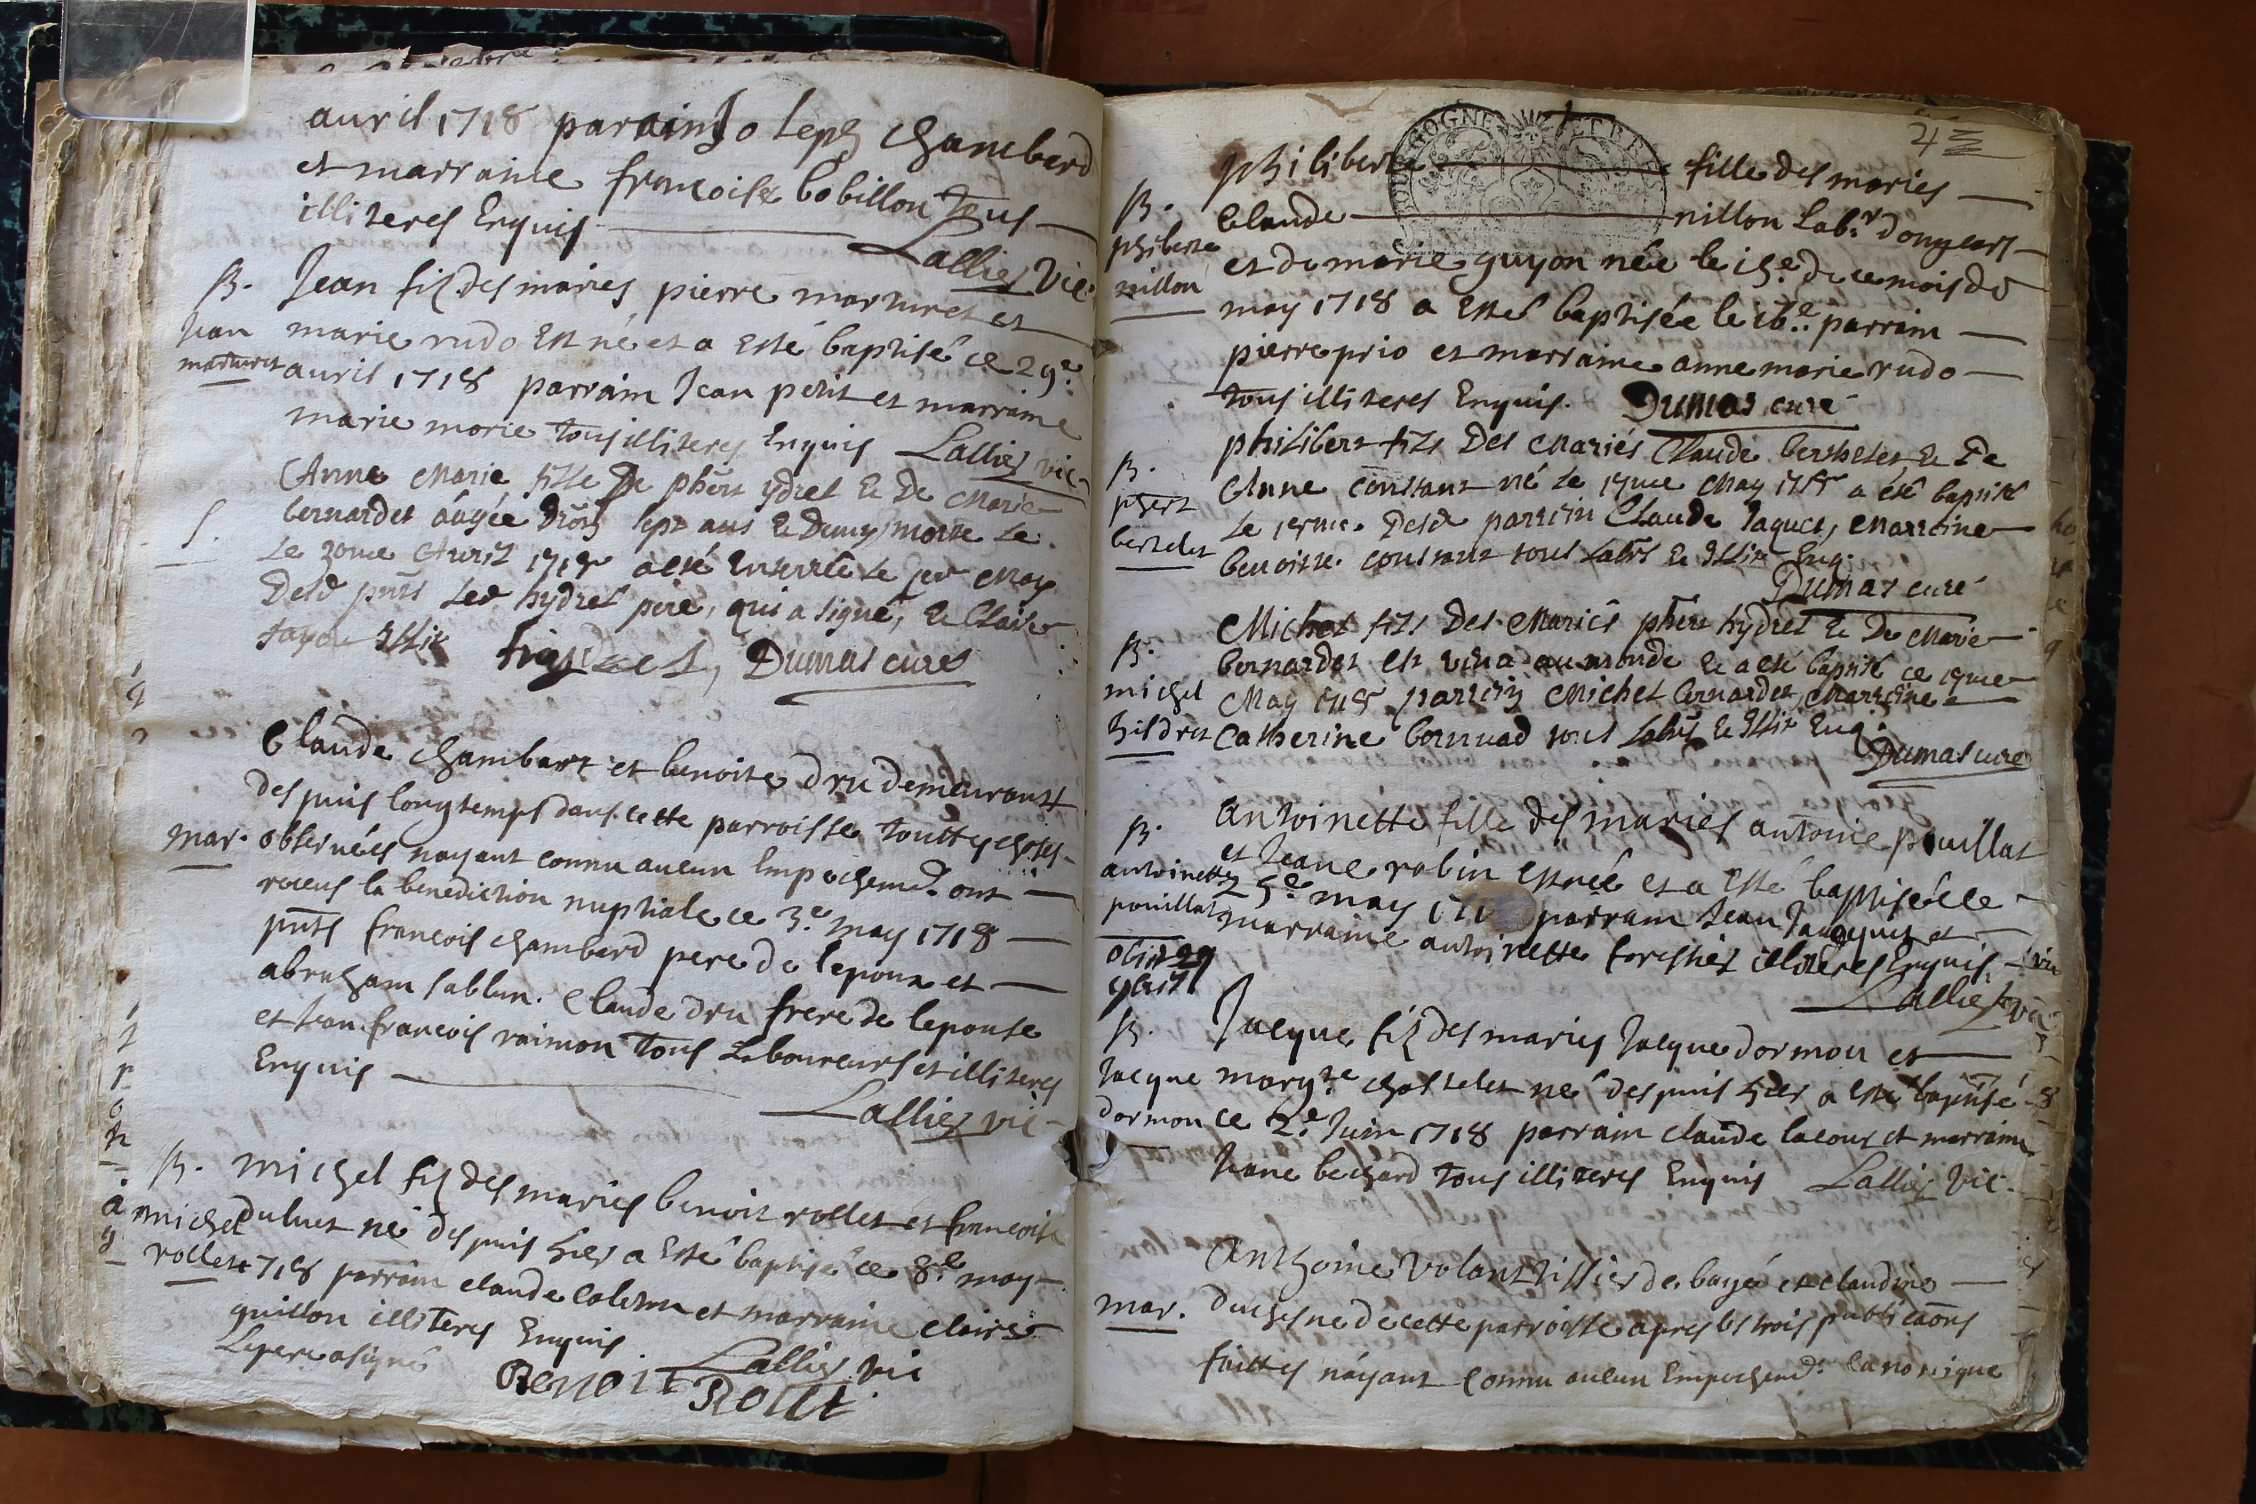 avril 1718 parain Joseph chambard
et marraine francoise bobillon tous
illiteres Enquis
Lallier Vic.
B.
Jean
marturet
Jean fiz des maries pierre marturet et
marie rudo Est né et a Esté baptisé ce 29e
avril 1718 parrain Jean petit et marraine
marie morie tous illiteres Enquis Lallier vic
S.
Anne Marie fille De phert ydret & De Marie
bernardet âagée Denv sept ans & Demy morte le
le 30me Avril 1718 a esté Enterrée le per May
Desd pnts led hydret pere, qui a signé, & Claude
Illit
hydret, Dumas curé
mar.
Claude chambart et benoite dru demeurant
despuis longtemps dans cette parroisse touttes choses
observées nayant connu aucun Empechemt. ont
receus la benediction nuptiale ce 3e may 1718
pnts francois chambard pere de lepoux et
abraham sablun. Claude dru frere de lepouse
et Jean francois raimon tous Laboureurs et illiteres
Enquis
Lallier vic
B.
michel
rollet
michel fiz des maries benoit rollet et francoise
duluet né despuis hier a Esté baptisé ce 8e may
1718 parrain claude et marraine claire
guillon illiteres Enquis
Lepere a signé
Lallier vic
Benoit Rollet
4
BOURGOGNE ET BRESSE
B.
phiberte
nillon
philiberte fille des maries
Claude nillon Labr. dongears
et de marie guyon née le 15e de ce mois de
may 1718 a Esté baptisée le 16e parrain
pierre prio et marraine anne marie rudo
tous illiteres Enquis. Dumas curé
B.
phert
bertelet
philibert fils Des Mariés Claude berthelet & De
Anne constant né le 17me May 1718 a été baptisé
Le 19me Desd parrein Claude Jaquet, Marreine
benoitte constant tous Labrs & Illit Enq.
Dumas curé
B.
michel
hildret
Michel fils Des Mariés phert hydret & De Marie
bernardet est venu au monde & a eté baptisé ce 19me
May 1718 parrein Michel bernardet, Marreine
Catherine bornuad tous Labrs & Illit Enq.
Dumas curé
B.
antoinette
pouillat
obiit 29
antoinette fille des maries antoine pouillat
et Jeane robin est née et a Esté baptisée le
25e may 171 parrain Jean Jacquet et
marraine antoinette forestier illiteres Enquis.
Lallier vic
B.
Jacque
dormon
Jacque fiz des maries Jacque dormon et
margte chattelet né despuis hier a Esté baptisé
ce 2e Juin 1718 parrain claude lacour et marraine
Jeane bechard tous illiteres Enquis Lallier Vic.
mar.
Anthoine Volant tissier de bagé et claudine
duchesne de cette parroisse apres les trois publicaons
faittes nayant connu aucun Empechemt. canonique